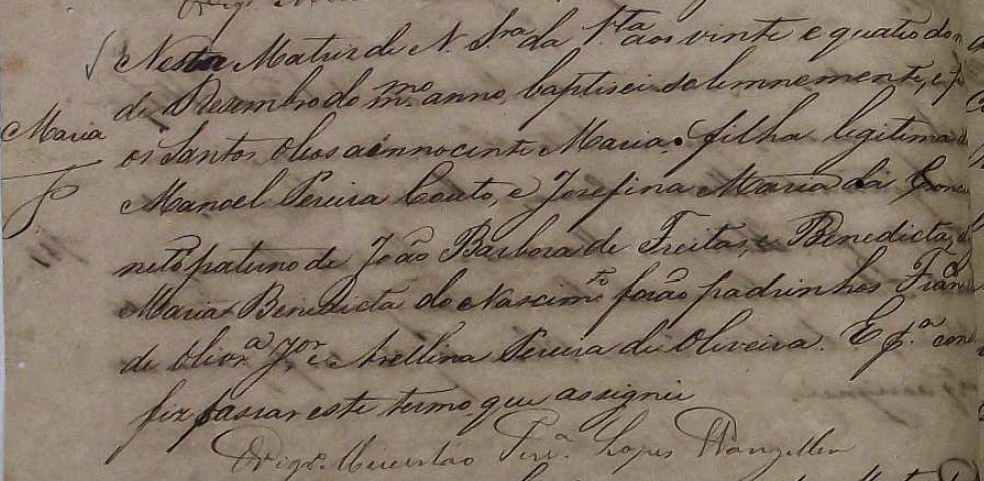 Nesta Matriz de N. Sra da Pta aos vinte e quatro do
de Desembro do mmo anno, baptisei solemnemente, e p
Maria
os Santos Oleos a innocente Maria, filha legitima d
Manoel Pereira Couto, e Josefina Maria da
neto paterno de João Barbosa de Freitas, e Benedicta,
Maria Benedicta do Nascimto forão padrinhos Fran
de Olivra Jor e Avellina Pereira de Oliveira. E pa con
fiz passar este termo que assignei
Vigro